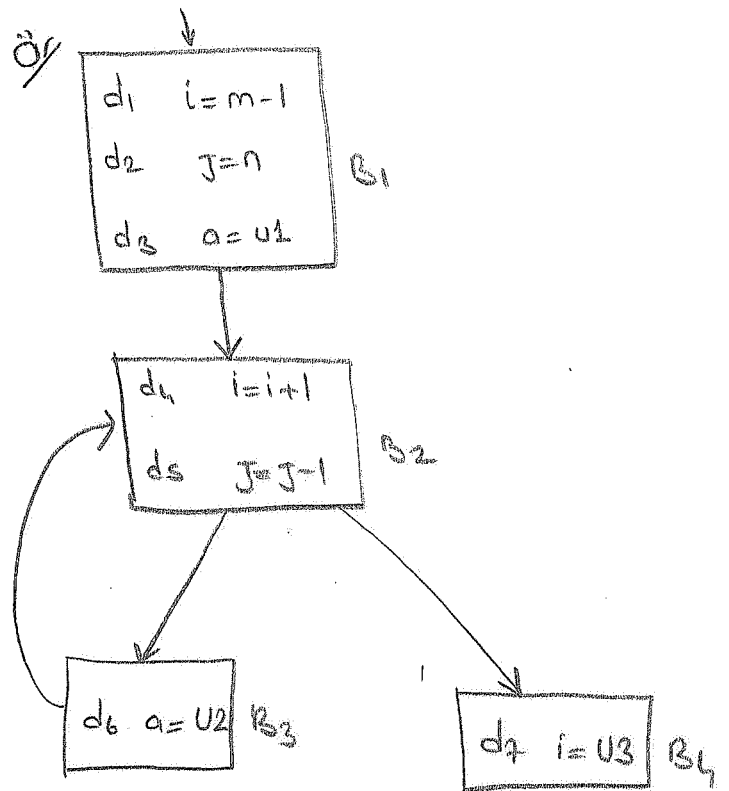 Ör/
d1 i=m-1
d2 J=n
d3 a=u1
B1
d4 i=i+1
d5 J=J-1
B2
d6 a=U2
B3
d7 i=U3
B4